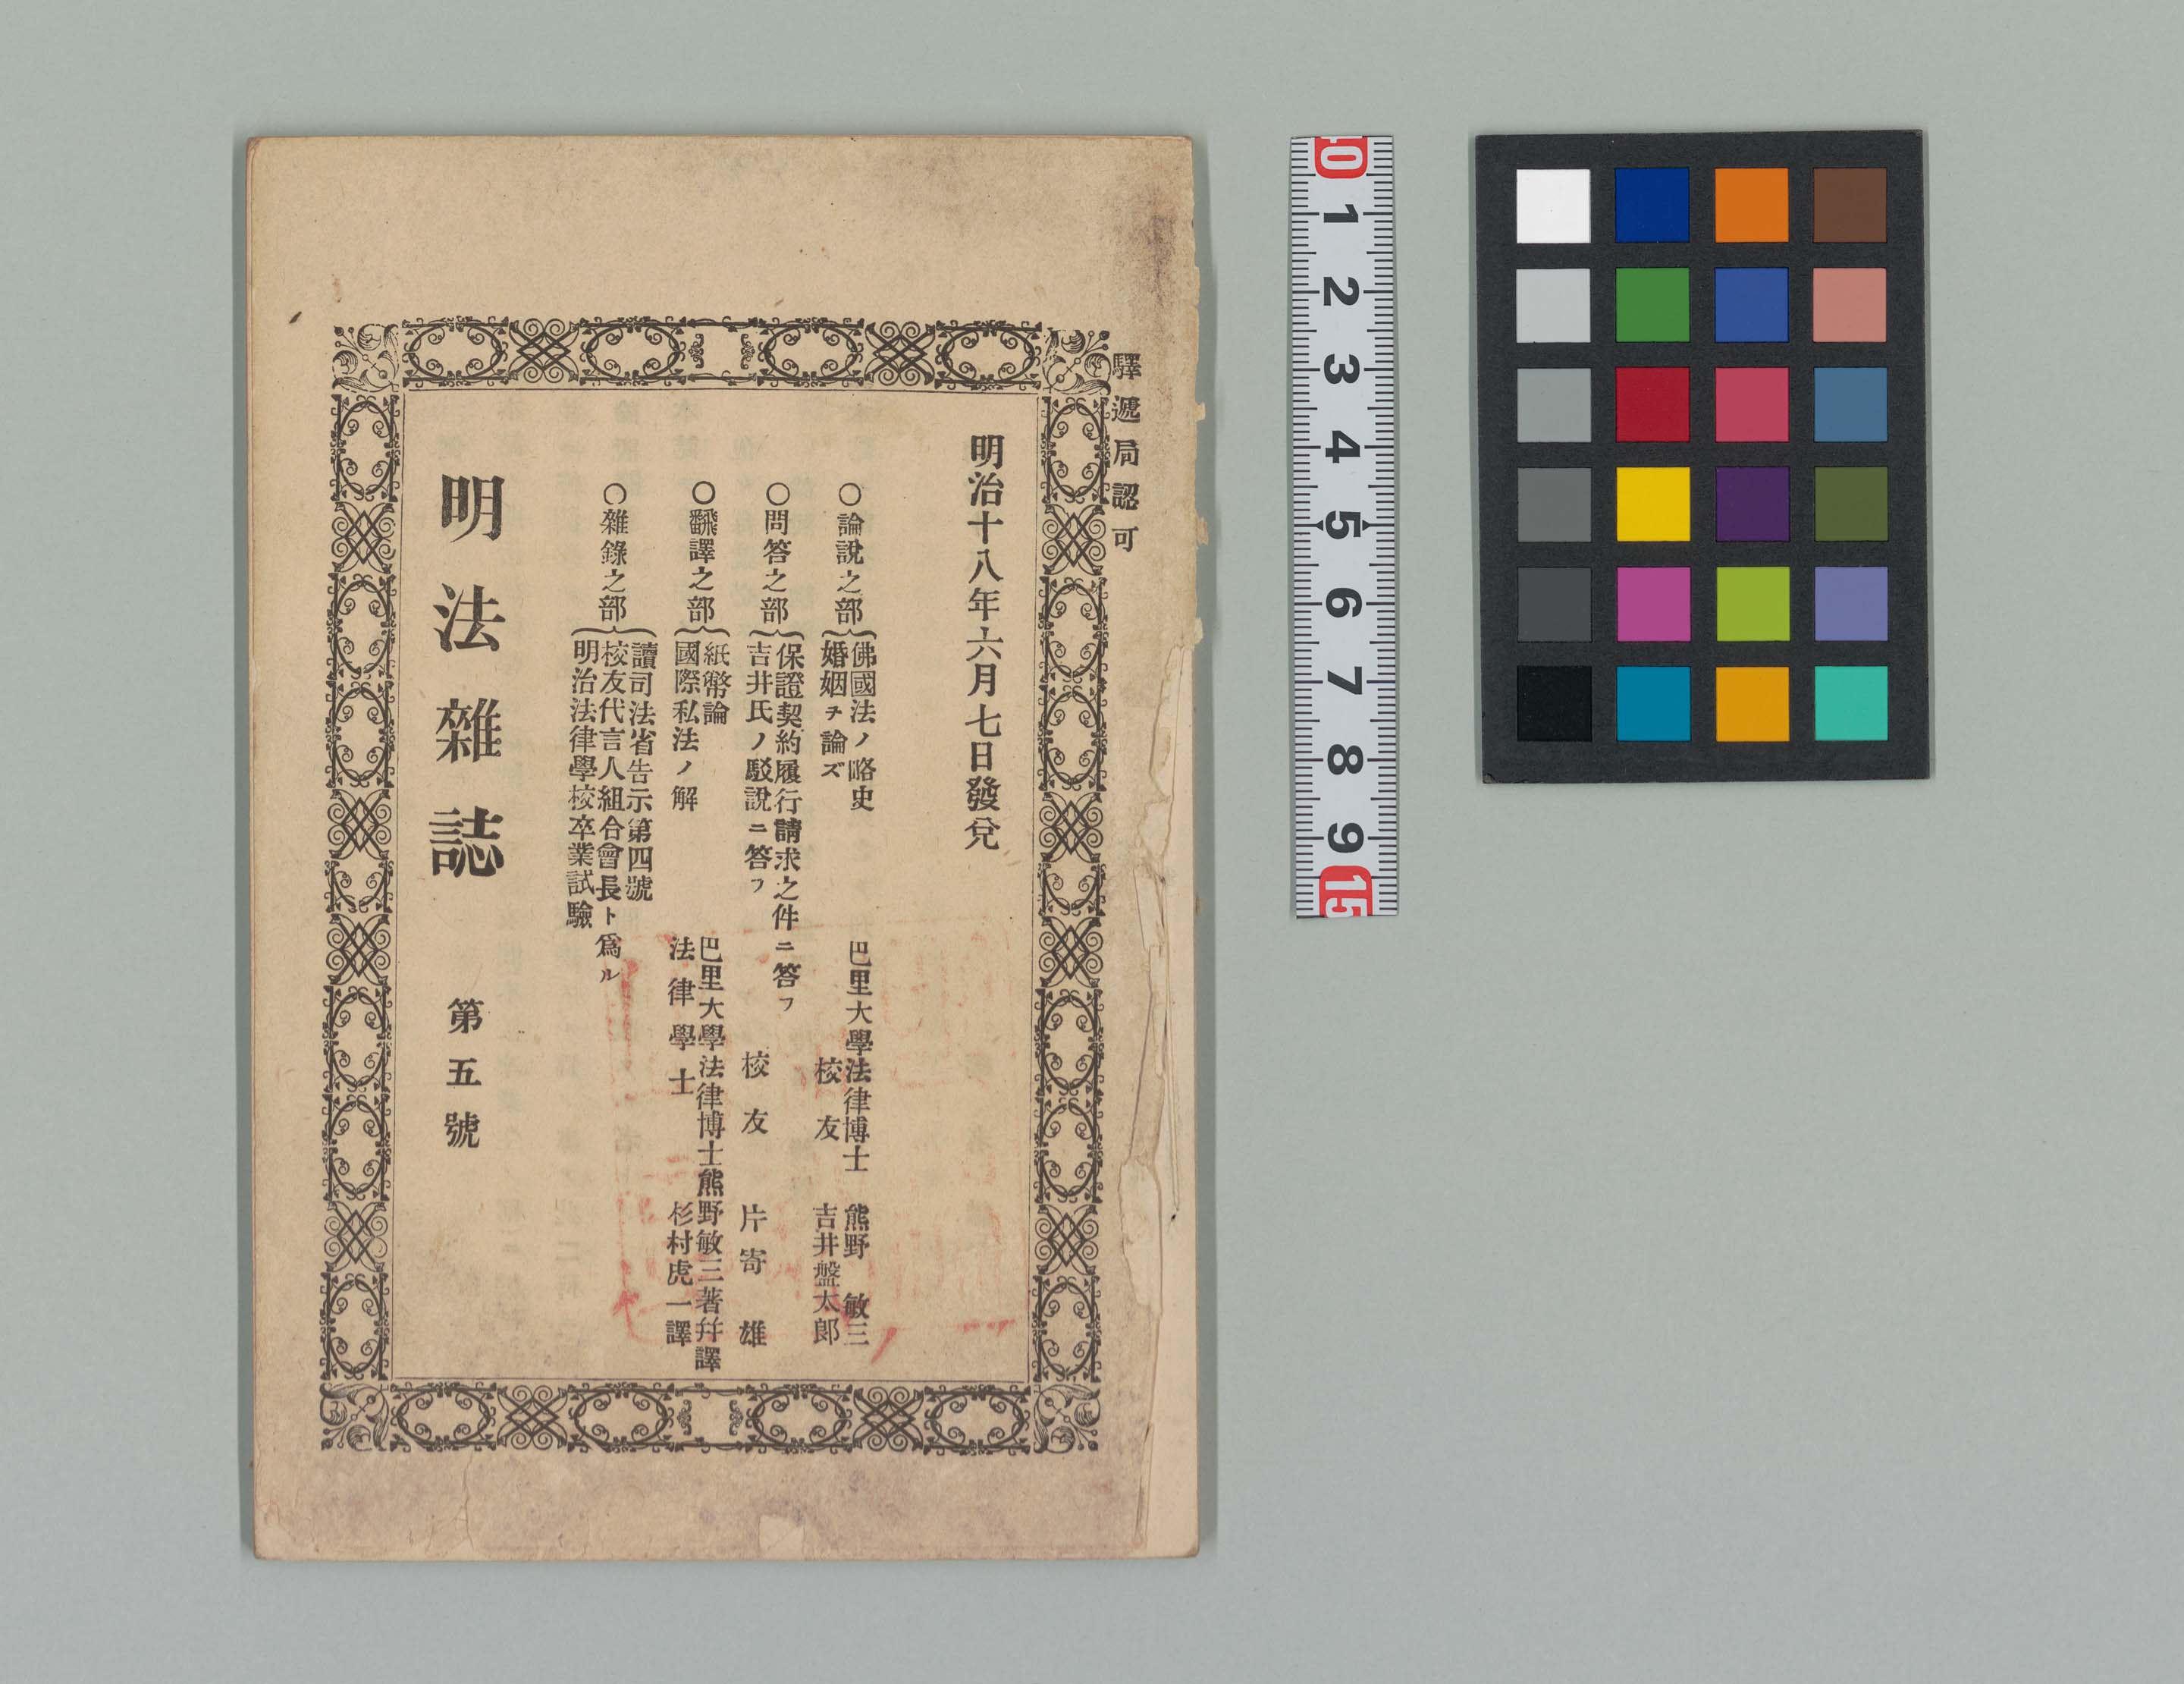 驛遞局認可
明治十八年六月七日發兌
○論說之部
佛國法ノ略史 巴里大學法律博士 熊野敏三
婚姻ヲ論ズ 校友 吉井盤太郎
○問答之部
保證契約履行請求之件ニ答フ
吉井氏ノ駁說ニ答フ 校友 片寄雄
○飜譯之部
紙幣論 巴里大學法律博士熊野敏三著幷譯
國際私法ノ解 法律學士 杉村虎一譯
○雜錄之部
讀司法省告示第四號
校友代言人組合會長ト爲ル
明治法律學校卒業試驗
明法雜誌 第五號
10
1
2
3
4
5
6
7
8
9
15